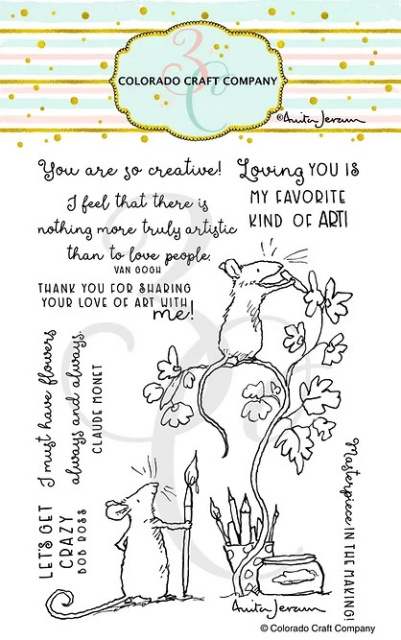 COLORADO CRAFT COMPANY
©Anita Jeram
You are so creative!
I feel that there is
nothing more truly artistic
than to love people.
VAN GOGH
THANK YOU FOR SHARING
YOUR LOVE OF ART WITH
me!
Loving YOU IS
MY FAVORITE
KIND OF ART!
I must have flowers
always and always.
CLAUDE MONET
LET'S GET
CRAZY
BOB ROSS
Masterpiece IN THE MAKING!
Anita Jeram
© Colorado Craft Company